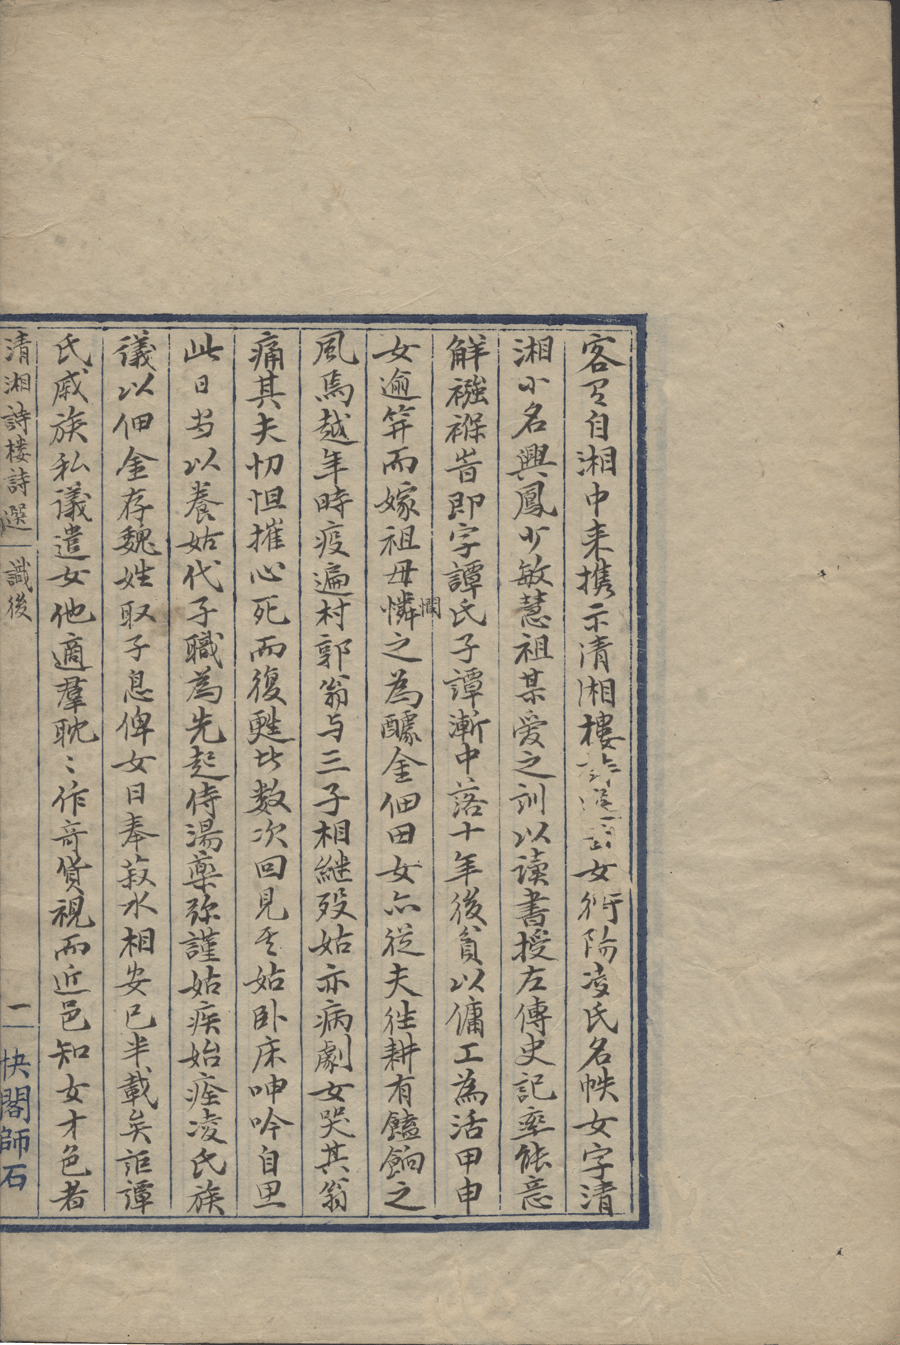 客有自湘中来携示清湘樓女衡陽凌氏名帙女字清
湘小名興鳳少敏慧祖某爱之訓以读書授左傳史記率能意
解襁褓时即字譚氏子譚漸中落十年後貧以傭工為活甲申
女逾笄而嫁祖母憐憫之為醵金佃田女亦從夫徃耕有饁餉之
風焉越年時疫遍村郭翁与三子相継殁姑亦病劇女哭其翁
痛其夫忉怛摧心死而復甦廿数次回見其姑卧床呻吟自思
此日当以養姑代子職為先起侍湯藥弥謹姑疾始痊凌氏族
議以佃金存魏姓取子息俾女日奉菽水相安已半載矣詎譚
氏戚族私議遣女他適羣耽〻作奇貨視而近邑知女才色者
清湘詩楼詩選 識後 一 快閣師石